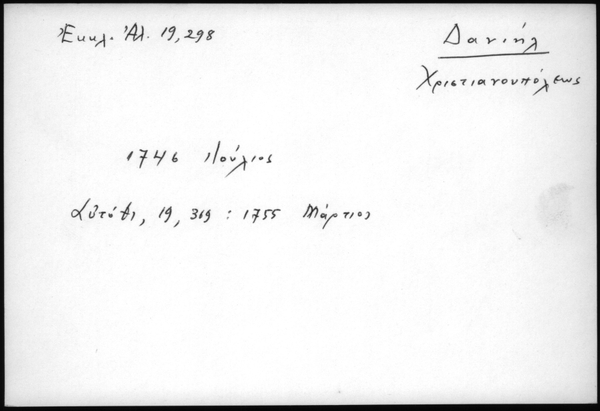 Ἐκκλ. Ἀλ. 19,298
Δανιήλ
Χριστιανουπόλεως
1746 Ἰούλιος
Αὐτόθι, 19, 369 : 1755 Μάρτιος